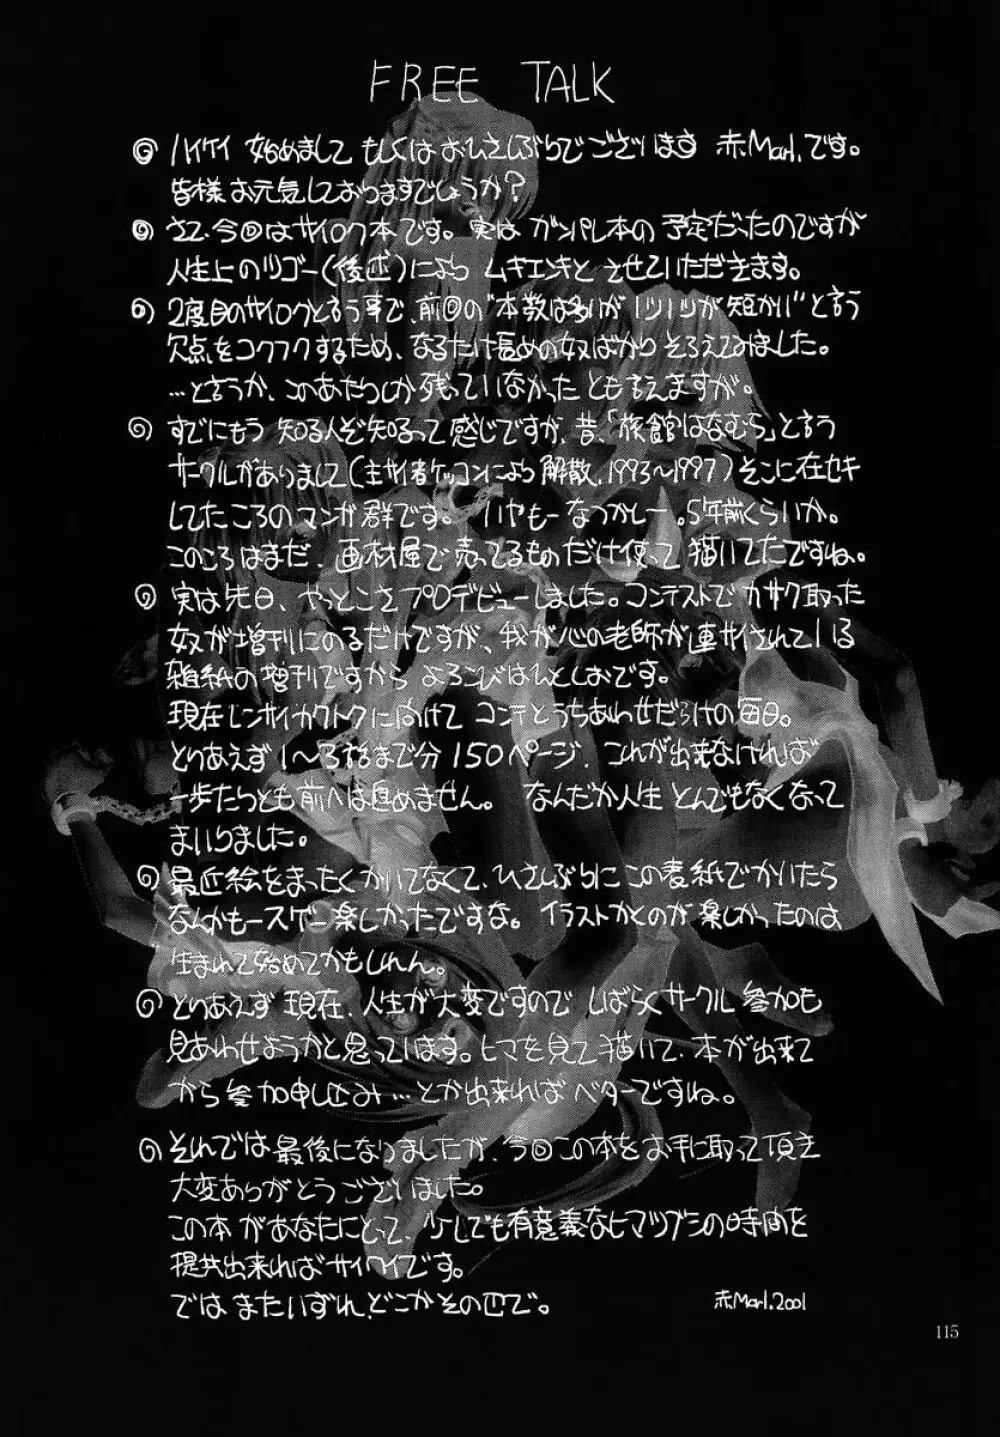 FREE TALK
ハイケイ 始めまして もしくはおひさしぶりでございます 赤Marl.です。
皆様お元気しておりますでしょうか?
さて、今回はサイロク本です。実はガンパレ本の予定だったのですが
人生上のツゴー(後述)により ムキエンキとさせていただきます。
2度目のサイロクと言う事で、前回の"本数は多いが1ツ1ツが短かい"と言う
欠点をコクフクするため、なるたけ長めの奴ばかりそろえてみました。
…と言うか、このあたりしか残っていなかったとも言えますが。
すでにもう知る人ぞ知るって感じですが、昔、「旅館はなむら」と言う
サークルがありまして(主サイ者ケッコンにより解散、1993〜1997)そこに在セキ
してたころのマンガ群です。いやもーなつかしー。5年前くらいか。
このころはまだ、画材屋で売ってるものだけ使って描いてたですね。
実は先日、やっとこさプロデビューしました。コンテストでカサク取った
奴が増刊にのるだけですが、我が心の老師が連サイされている
雑紙の増刊ですからよろこびはんとしおです。
現在レンサイカクトクに向けてコンテとうちあわせだらけの毎日。
とりあえず1〜3話まで分150ページ、これが出来なければ
一歩たりとも前へは進めません。なんだか人生とんでもなくなって
まいりました。
最近絵をまったくかいてなくて、ひさしぶりにこの表紙でかいたら
なんかもースゲー楽しかったですな。イラストかくのが楽しかったのは
生まれて始めてかもしれん。
とりあえず現在、人生が大変ですのでしばらくサークル参加も
見あわせようかと思っています。ヒマを見て描いて、本が出来て
から参加申し込み…とか出来ればベターですね。
それでは最後になりましたが、今回この本をお手に取って頂き
大変ありがとうございました。
この本があなたにとって、少しでも有意義なヒマツブシの時間を
提共出来ればサイワイです。
ではまたいずれ、どこかその辺で。
赤Marl.2001
115